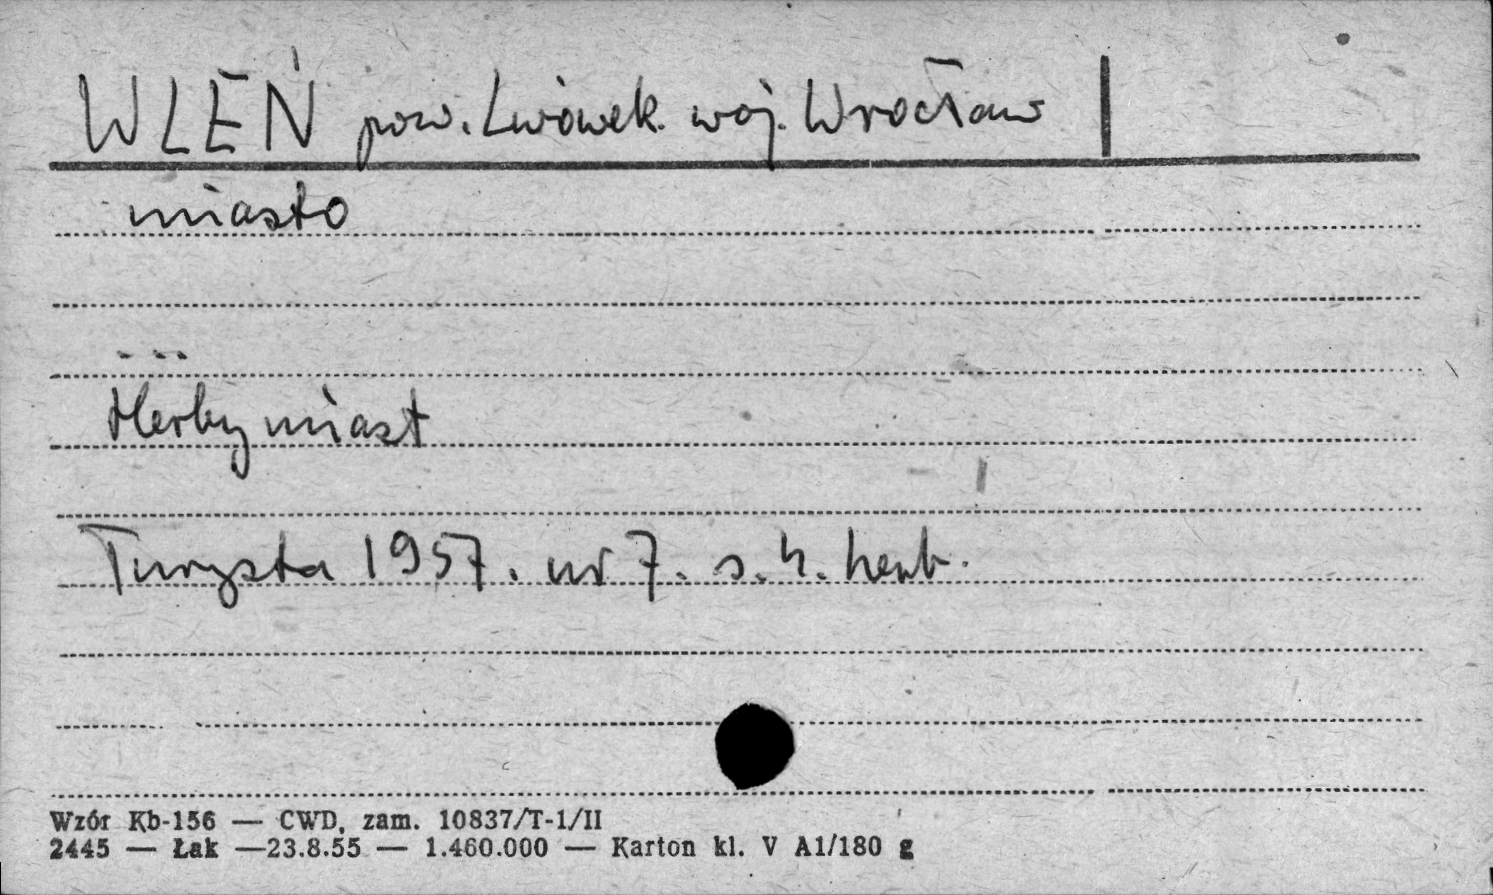 WLEŃ pow. Lwówek. woj. Wrocław
miasto
...
Herby miast
Turysta 1957. nr 7. s. 4. herb.
Wzór Kb-156 — CWD, zam. 10837/T-1/II
2445 — Łak —23.8.55 — 1.460.000 — Karton kl. V A1/180 g